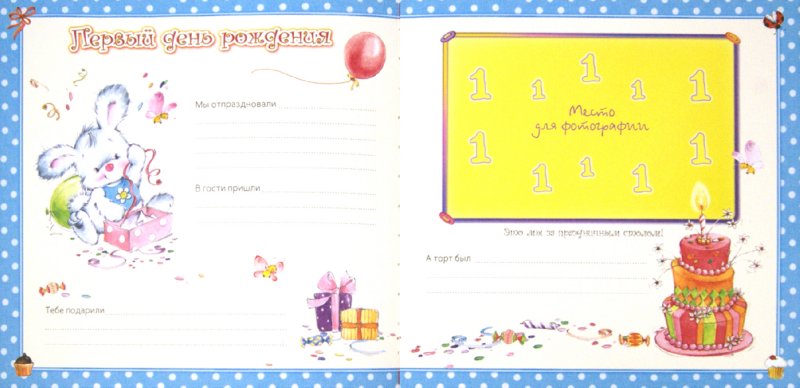 Первый день рождения
Мы отпраздновали
В гости пришли
Тебе подарили
1 1 1 1 1
Место
для фотографии
1 1 1 1 1
Это мы за праздничным столом!
А торт был